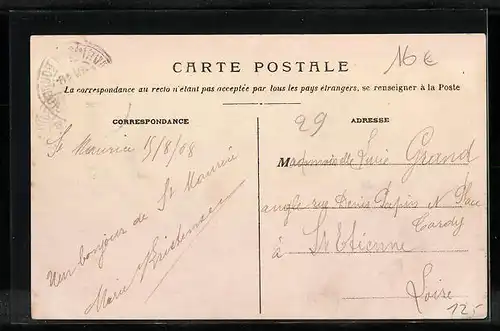 16 €
CARTE POSTALE
La correspondance au recto n'étant pas acceptée par tous les pays étrangers, se renseigner à la Poste
CORRESPONDANCE
ADRESSE
29
St Maurice 15/8/08
Mademoiselle Grand
angle rue Denis Papin
à St Etienne
Loire
Un bonjour de St Maurice
Marie
12,-